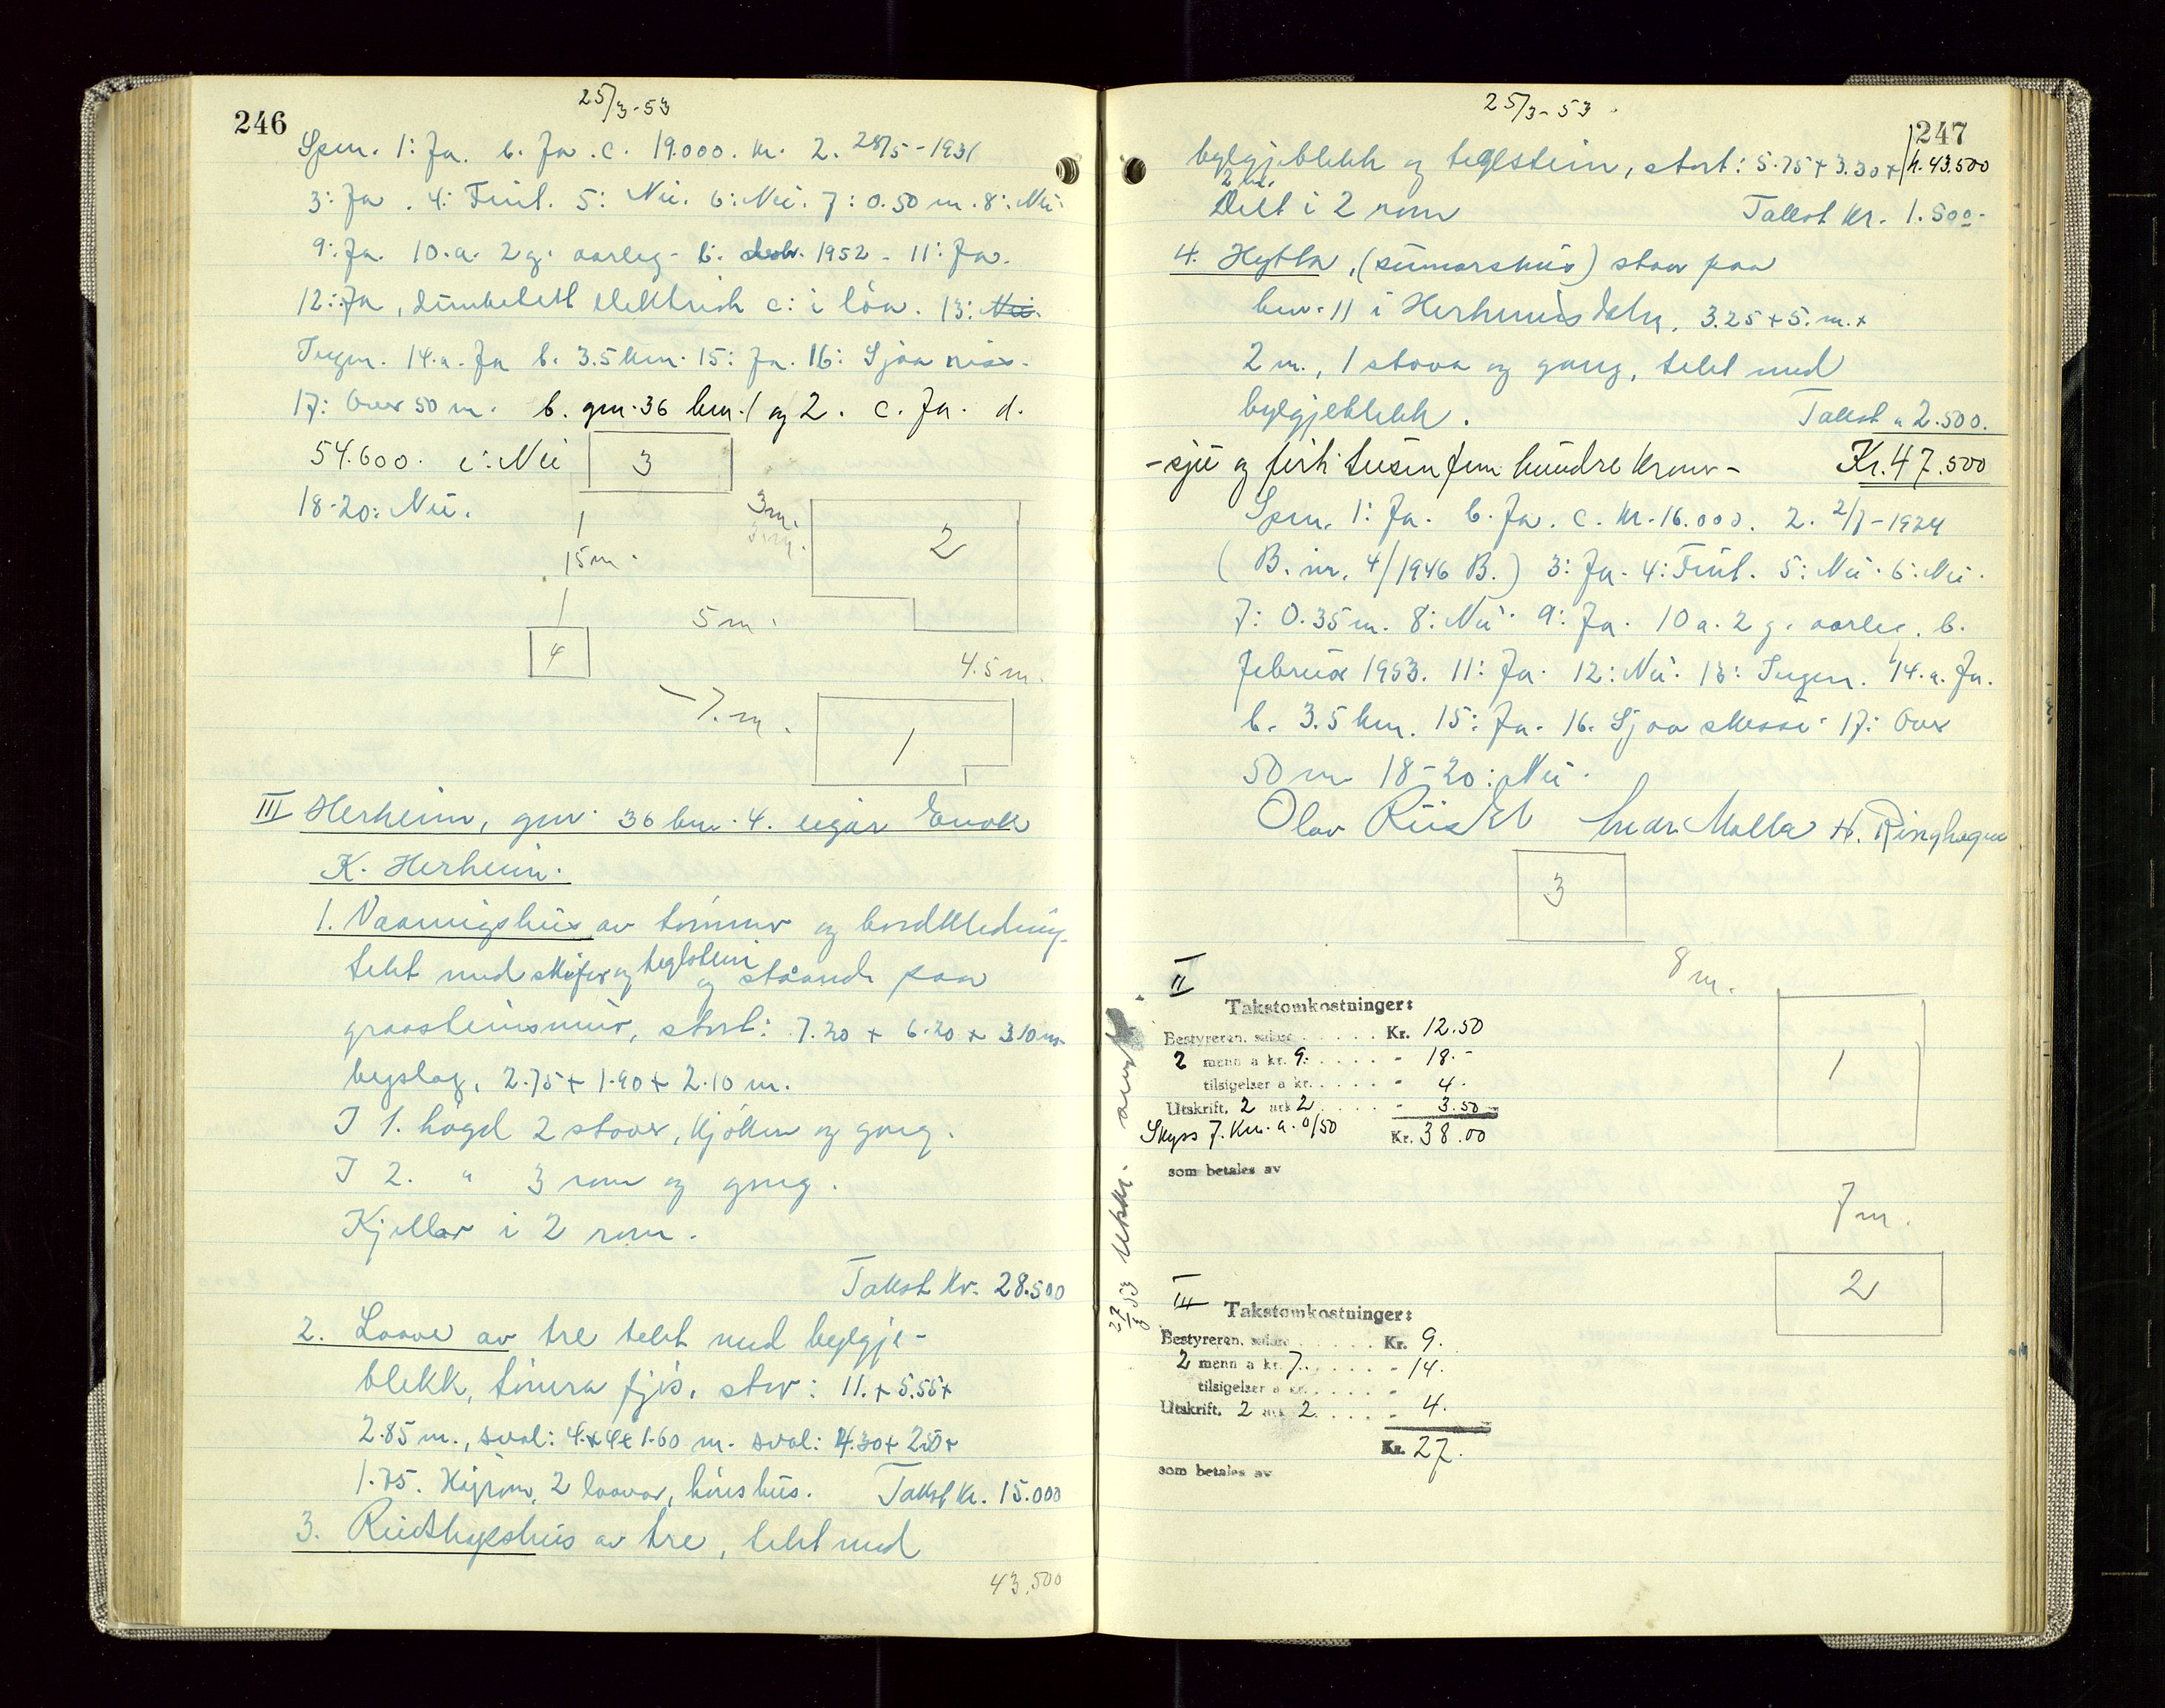 246
25/3-53
Spm. 1: Ja. b. Ja. c. 19.000. kr. 2. 28/5-1931
3: Ja. 4: Fint. 5: Nei. 6: Nei. 7: 0.50 m. 8: Nei.
9: Ja. 10.a. 2 g. aarleg. b: desbr. 1952. 11: Ja.
12: Ja, elektrisk c: i löa. 13: Nei.
Ingen. 14.a. Ja b. 3.5 km. 15: Ja. 16: Sjaa
17: Over 50 m. b. gnr. 36 bnr. 1 og 2. c. Ja. d.
54.600. e: Nei
18-20: Nei.
3
15 m.
4
3 m.
2
5 m.
4.5 m.
7. m.
1
III Herheim, gnr. 36 bnr. 4. eigar Enok
K. Herheim.
1. Vaaningshus av tömmer og bordkledning,
tekt med skifer og teglstein og ståande paa
graasteinsmur, stort: 7.20 + 6.20 + 3.10 m.
bislag, 2.75 + 1.90 + 2.10 m.
I 1. högd 2 stover, kjöken og gang.
I 2. " 3 rom og gang.
Kjellar i 2 rom.
Takst kr. 28.500
2. Laave av tre tekt med bylgje-
blekk, tömra fjös, stor: 11. + 5.55 +
2.85 m., sval: 4. + 4 + 1.60 m. sval: 4.30 + 2.50 +
1.75. Höyrom, 2 laavar, hönshus. Takst kr. 15.000
3. Reidskapshus av tre, tekt med
43.500
25/3-53
247
bylgjeblekk og teglstein, stort: 5.75 + 3.30 + kr. 43.500
2 m.
Delt i 2 rom Takst kr. 1.500.-
4. Hytta, (sumarshus) staar paa
bnr. 11 i Herheimsdalen, 3.25 + 5. m. +
2 m., 1 stova og gang, tekt med
bylgjeblekk. Takst " 2.500.
- sju og förti tusen fem hundre kroner - Kr. 47.500
Spm. 1: Ja. b. Ja. c. kr. 16.000. 2. 2/7-1924
(B. nr. 4/1946 B.) 3: Ja. 4: Fint. 5: Nei. 6: Nei.
7: 0.35 m. 8: Nei. 9: Ja. 10 a. 2 g. aarleg. b.
februar 1953. 11: Ja. 12: Nei. 13: Ingen. 14.a. Ja.
b. 3.5 km. 15: Ja. 16. Sjaa skisse. 17: Over
50 m 18-20: Nei.
Olav Malla H. Ringhagen
3
8 m.
1
7 m.
2
II
Takstomkostninger:
Bestyreren, salær . . . . . Kr. 12.50
2 menn a kr. 9. . . . . - 18.-
tilsigelser a kr. . . . . - 4.
Utskrift, 2 ark 2 . . . . - 3.50
Skyss 7. km. a. 0/50 Kr. 38.00
som betales av
27/3 53 utskr. sendt
III
Takstomkostninger:
Bestyreren, salær . . . . . Kr. 9.
2 menn a kr. 7. . . . . - 14.
tilsigelser a kr. . . . . -
Utskrift, 2 ark 2. . . . . - 4.
Kr. 27.
som betales av